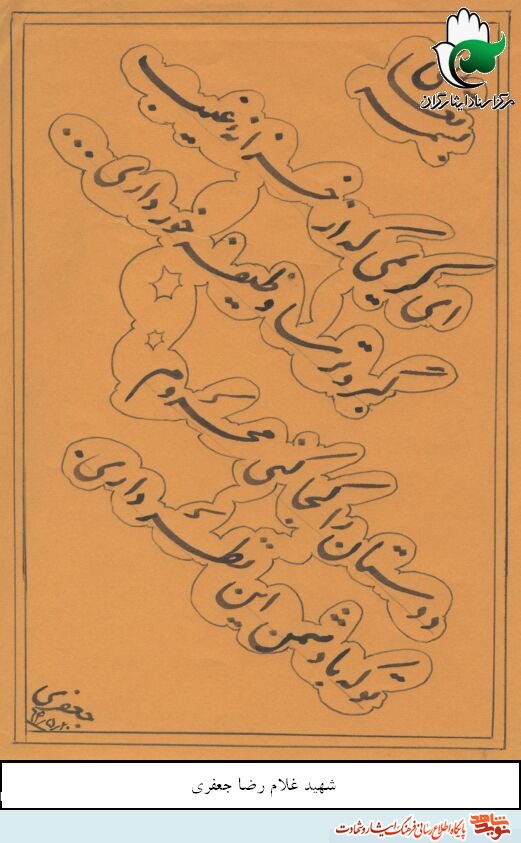 بسمه تعالی
مرکز اسناد ایثارگران
ای کریمی که از خزانه غیب
گبر و ترسا وظیفه خور داری ...
دوستان را کجا کنی محروم
تو که با دشمن این نظر داری.
جعفری
شهید غلام رضا جعفری
نوید شاهد پایگاه اطلاع رسانی فرهنگ ایثار و شهادت